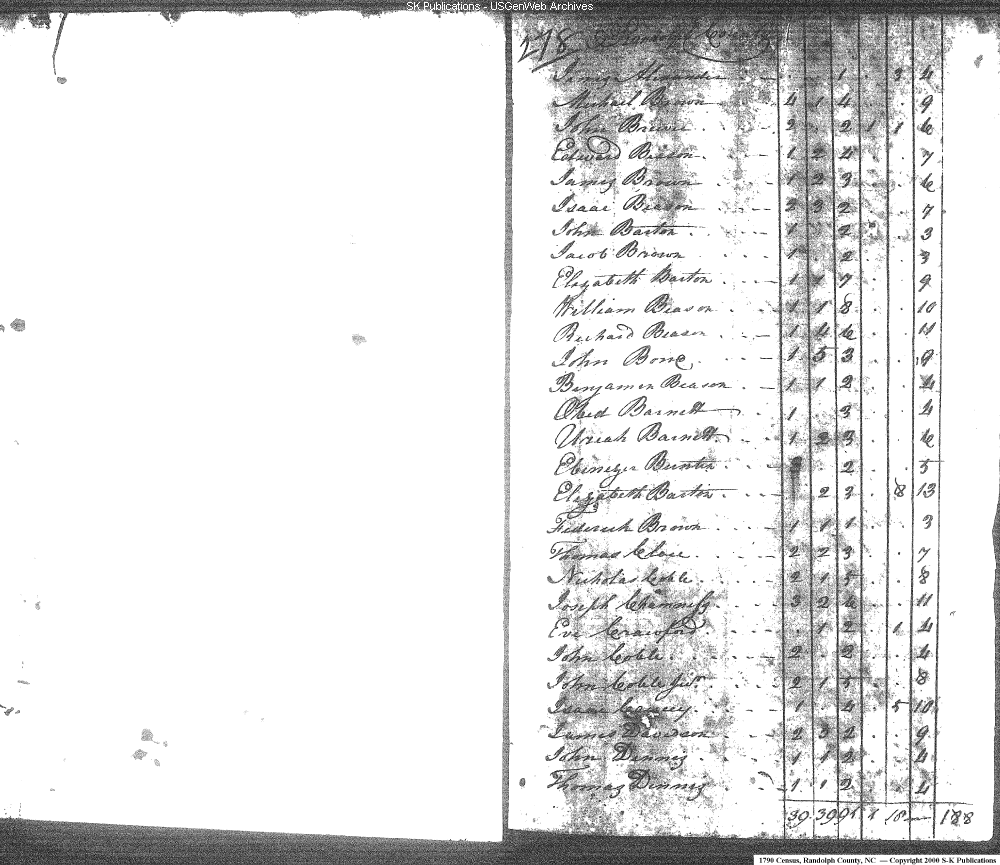 SK Publications - USGenWeb Archives
278 County
James Alexander 1 3 4
Michael Brown 4 1 4 9
John 2 2 1 1 6
Edward Beeson 1 2 4 7
James Brown 1 2 3 6
Isaac Beason 2 3 2 7
John Barton 1 2 3
Jacob Brown 1 2 3
Elizabeth Barton 1 1 7 9
William Beason 1 1 8 10
Richard Beason 1 4 6 11
John Bone 1 5 3 9
Benjamin Beason 1 1 2 4
Obed Barnett 1 3 4
Uriah Barnett 1 2 3 6
Ebenezer 3 2 5
Elizabeth Barton 2 3 8 13
Frederick Brown 1 1 1 3
Thomas 2 2 3 7
Nicholas Coble 2 1 5 8
Joseph Chamness 3 2 6 11
Eve Crawford 1 2 1 4
John Coble 2 2 4
John Coble Junr 2 1 5 8
Isaac 1 4 5 10
James Davidson 2 3 2 9
John Dennis 1 1 2 4
Thomas Dennis 1 1 2 4
39 39 91 1 18 188
1790 Census, Randolph County, NC — Copyright 2000 S-K Publications